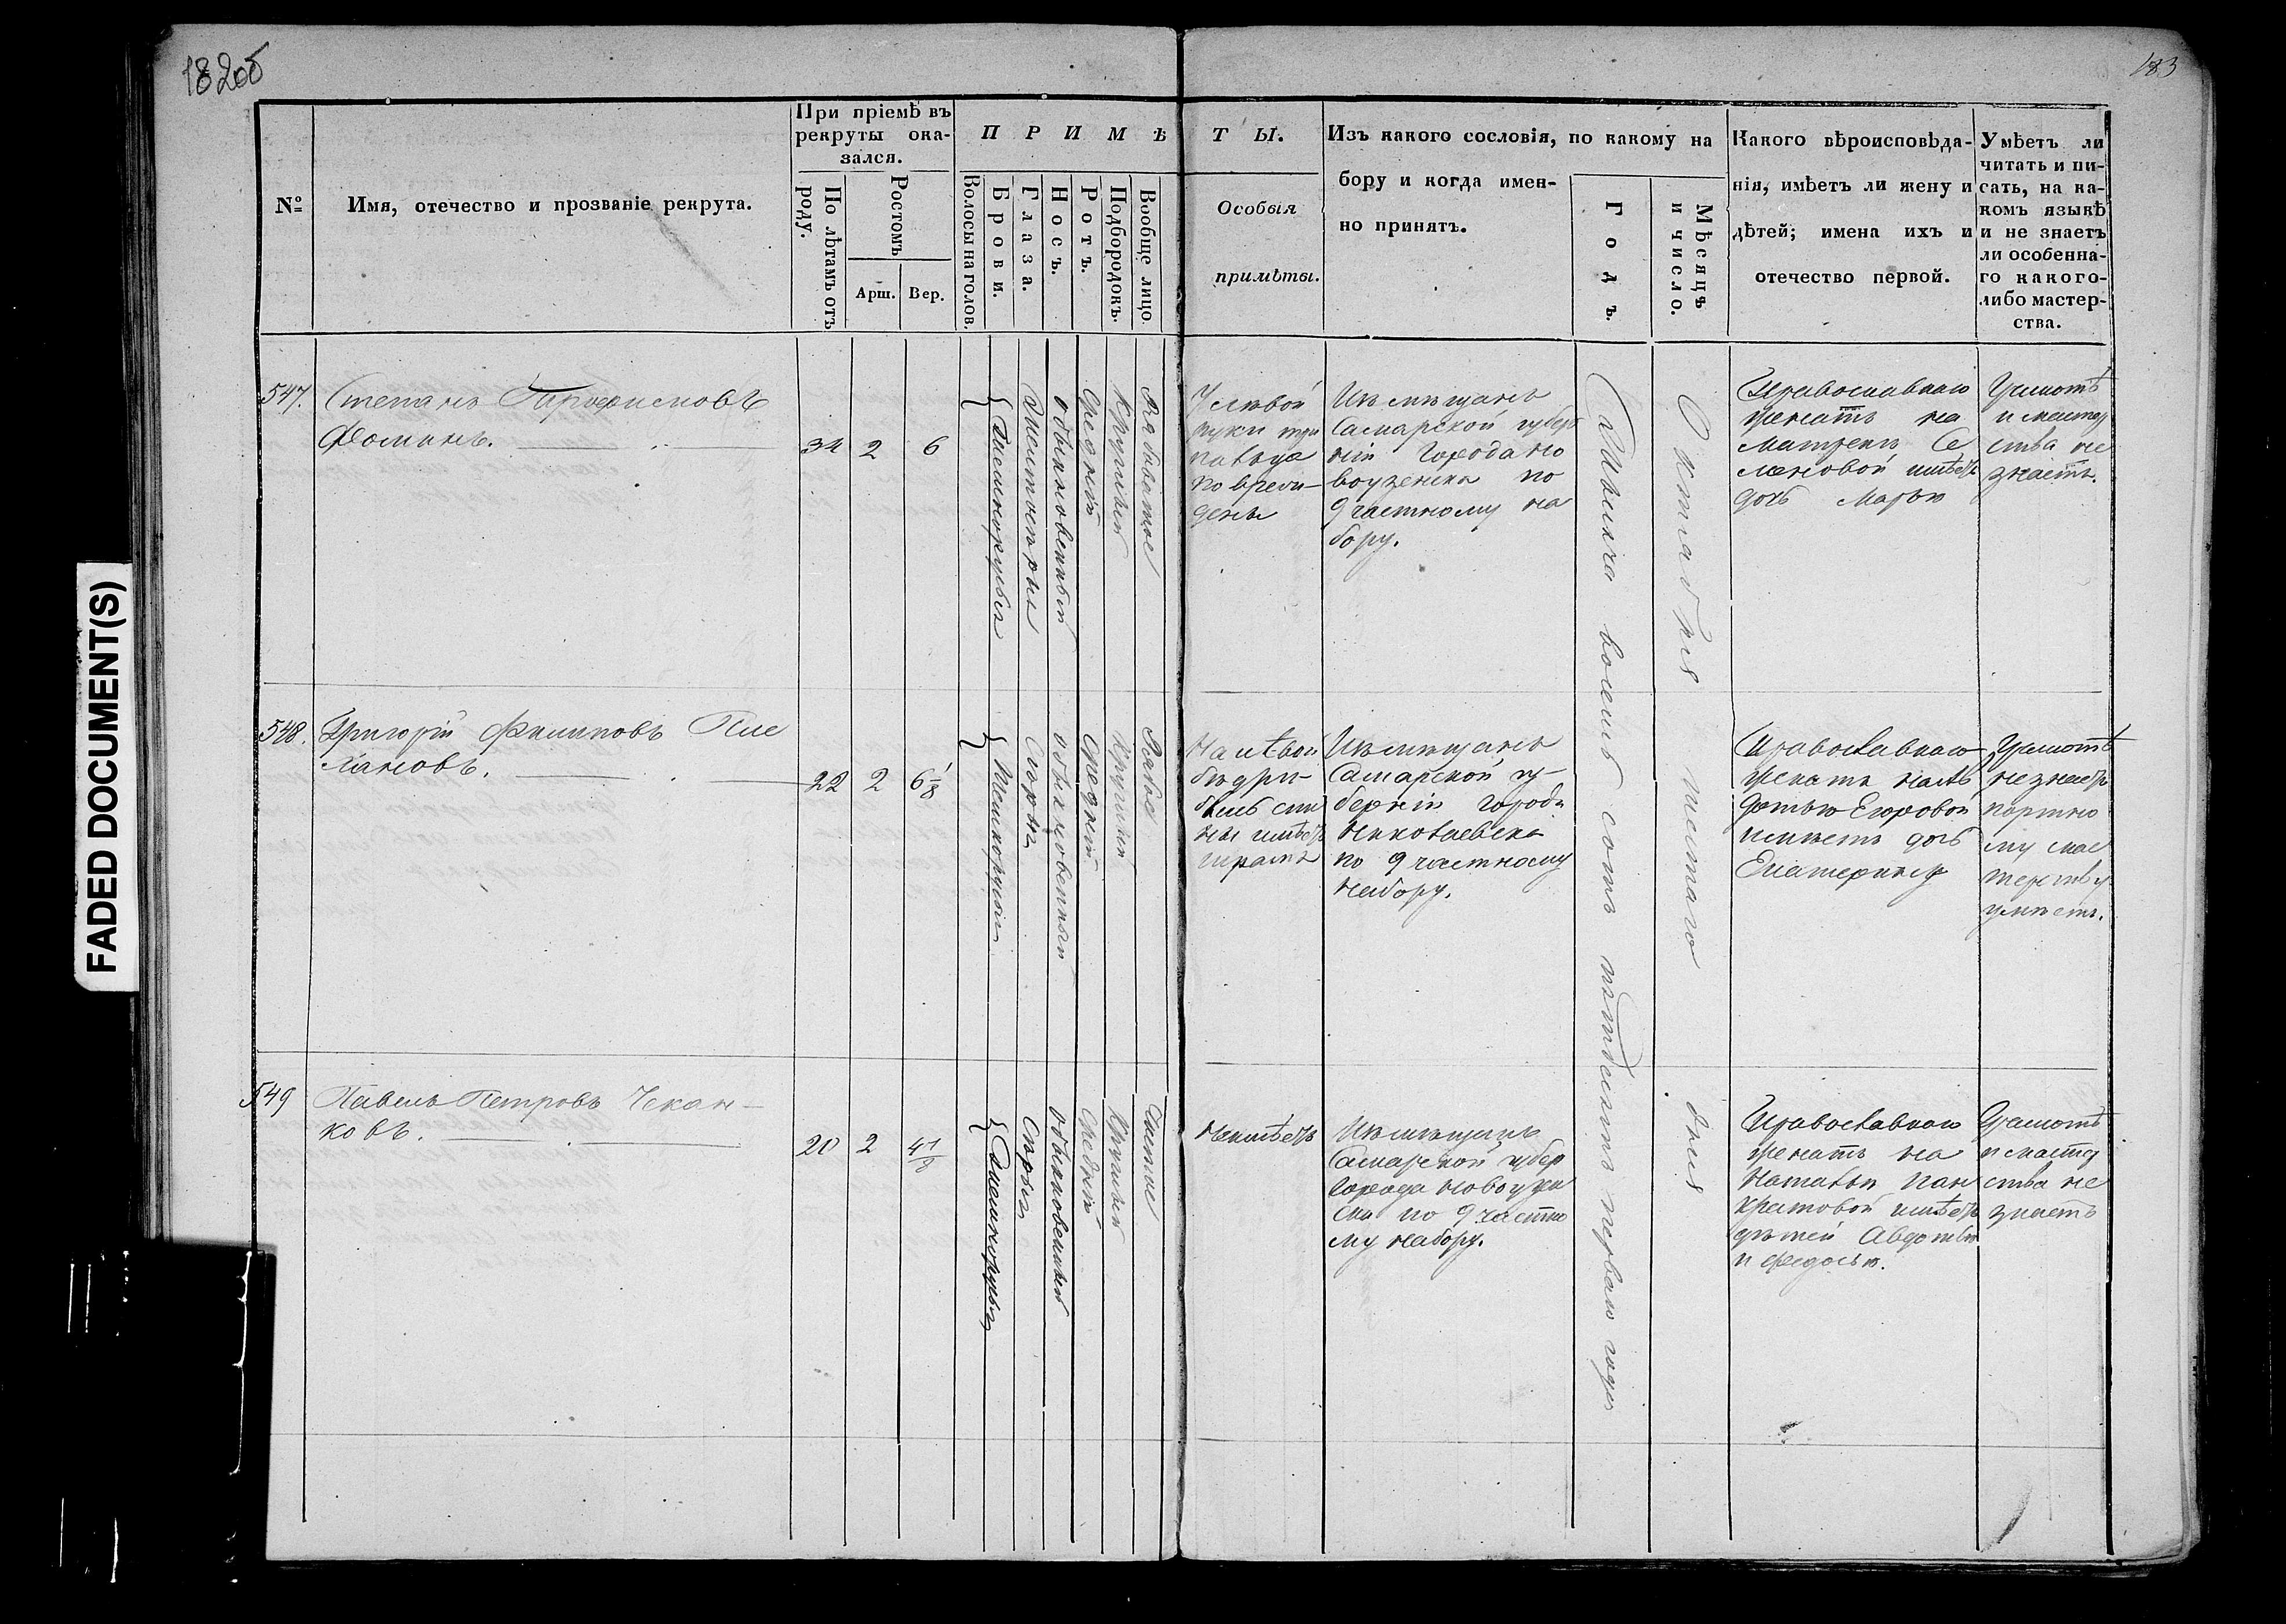 182об
183
FADED DOCUMENT(S)
№
Имя, отечество и прозваніе рекрута.
При пріемѣ въ
рекруты ока-
зался.
По лѣтамъ отъ
роду.
Ростомъ
Арш.
Вер.
ПРИМѢ
Волосы на голов.
Брови.
Глаза.
Носъ.
Ротъ.
Подбородокъ.
Вообще лицо.
ТЫ.
Особыя
примѣты.
Изъ какого сословія, по какому на
бору и когда имен-
но принятъ.
Годъ.
Мѣсяцъ
и число.
Какого вѣроисповѣда-
нія, имѣетъ ли жену и
дѣтей; имена ихъ и
отечество первой.
Умѣетъ ли
читать и пи-
сать, на ка-
комъ языкѣ
и не знаетъ
ли особенна-
го какого-
либо мастер-
ства.
547.
Степанъ
Фоминъ.
2
6
Темнорусыя
обыкновенный
Средній
Круглый
Рябоватое
У левой
руки три
пальца
повреж-
дены
Изъ мещанъ
Самарской губер
ніи Города Но
воузенска по
9 частному на
бору.
Тысяча восемь сотъ пятьдесятъ перваго года
Октября шестаго дня
Православнаго
женатъ на
Матрене Се
меновой имѣетъ
дочь Марью
Грамотѣ
и мастер
ства не
знаетъ.
548.
Григорій Филиповъ
лановъ.
22
2
6 1/8
Темнорусыи
Серыи
обыкновенный
Средній
Круглый
Рябое
На лѣвой
имѣетъ
шрамъ
Изъ мещанъ
Самарской гу-
берніи Города
Николаевска
по 9 частному
набору.
Православнаго
женатъ на Ав
дотье Егоровой
имѣетъ дочь
Екатерину
Грамотѣ
не знаетъ
портно
му мас
терству
умѣетъ.
549
Павелъ Петровъ Чекан-
ковъ.
20
2
4 1/8
Темнорусыя
Серыя
обыкновенный
Средній
Круглый
Чистое
Неимѣетъ
Изъ мещанъ
Самарской губер
Города Новоузен
ска по 9 частно
му набору.
Православнаго
женатъ на
Натальи Пан
кратовой имѣетъ
детей Авдотью
и Федосью.
Грамотѣ
и мастер
ства не
знаетъ